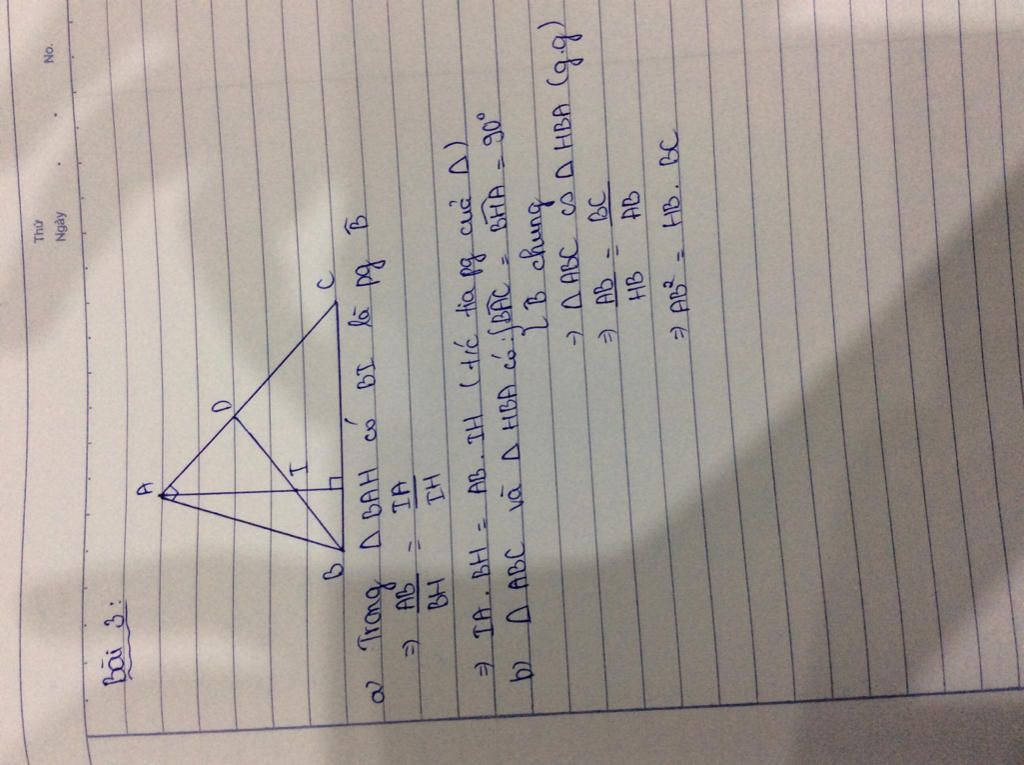 Thứ
Ngày
No.
Bài 3:
A
D
I
B
C
a) Trong Δ BAH có BI là pg B̂
⇒ AB/BH = IA/IH
⇒ IA . BH = AB . IH (t/c tia pg của Δ)
b) Δ ABC và Δ HBA có: { BAC = BHA = 90°
{ B chung
⇒ Δ ABC ∽ Δ HBA (g.g)
⇒ AB/HB = BC/AB
⇒ AB² = HB . BC